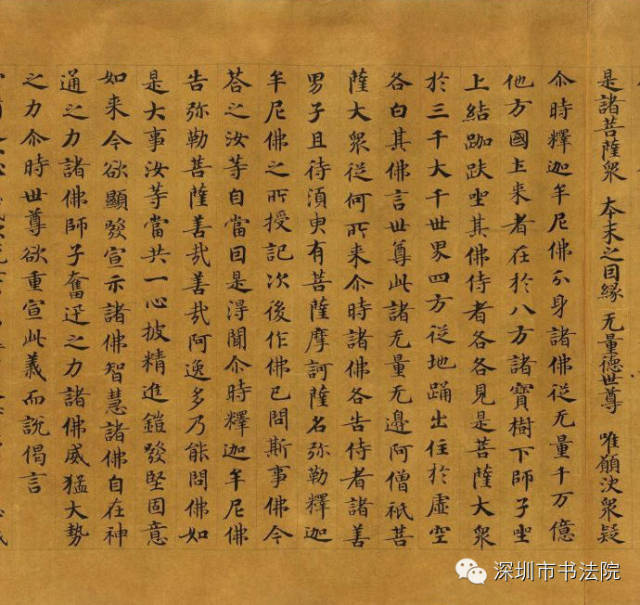 是諸菩薩衆 本末之因緣 无量德世尊 唯願決衆疑
尒時釋迦牟尼佛分身諸佛從无量千万億
他方國土来者在於八方諸寶樹下師子坐
上結跏趺坐其佛侍者各各見是菩薩大衆
於三千大千世界四方從地踊出住於虛空
各白其佛言世尊此諸无量无邊阿僧祇菩
薩大衆從何所来尒時諸佛各告侍者諸善
男子且待須臾有菩薩摩訶薩名弥勒釋迦
牟尼佛之所授記次後作佛已問斯事佛今
荅之汝等自當因是得聞尒時釋迦牟尼佛
告弥勒菩薩善哉善哉阿逸多乃能問佛如
是大事汝等當共一心披精進鎧發堅固意
如来今欲顯發宣示諸佛智慧諸佛自在神
通之力諸佛師子奮迅之力諸佛威猛大勢
之力尒時世尊欲重宣此義而說偈言
深圳市书法院